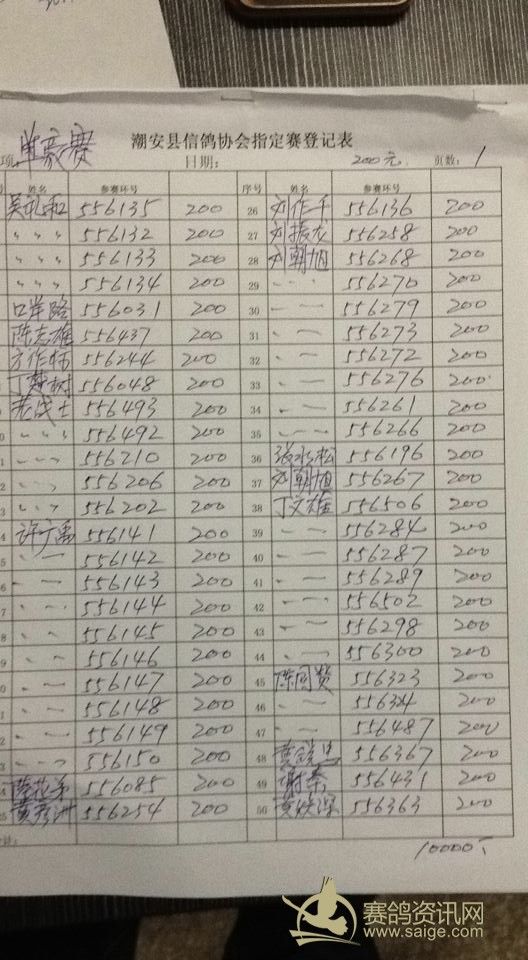 潮安县信鸽协会指定赛登记表
项: 单豪赛 日期: 200元 页数: 1
号 姓名 参赛环号 序号 姓名 参赛环号
吴礼和 556135 200 26 刘作千 556136 200
〃 〃 〃 556132 200 27 刘振龙 556258 200
〃 〃 〃 556133 200 28 刘朝旭 556268 200
〃 〃 〃 556134 200 29 556270 200
口岸路 556031 200 30 556279 200
陈志雄 556437 200 31 556273 200
方作标 556244 200 32 556272 200
丁梦树 556048 200 33 556276 200
老战士 556493 200 34 556261 200
0 〃 〃 〃 556492 200 35 556266 200
1 556210 200 36 张水松 556196 200
2 556206 200 37 刘朝旭 556267 200
3 556202 200 38 丁文雄 556506 200
4 许广禹 556141 200 39 556284 200
5 556142 200 40 556287 200
6 556143 200 41 556289 200
7 556144 200 42 556502 200
8 556145 200 43 556298 200
9 556146 200 44 556300 200
0 556147 200 45 陈同贤 556323 200
1 556148 200 46 556324 200
2 556149 200 47 556487 200
3 556150 200 48 556367 200
4 556085 200 49 谢泰 556431 200
25 黄彦洲 556254 200 50 556363 200
计: 10000
赛鸽资讯网
www.saige.com